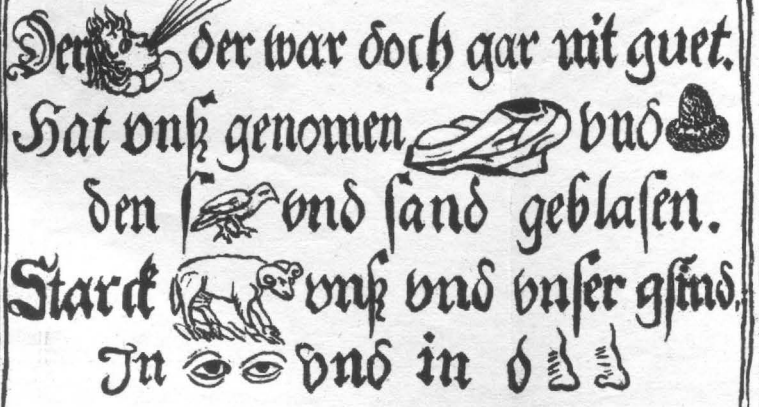 Den der war doch gar nit guet.
Hat vnß genomen vnd
den ſ vnd ſand geblaſen.
Starck vnß vnd vnſer gſind.
In vnd in d